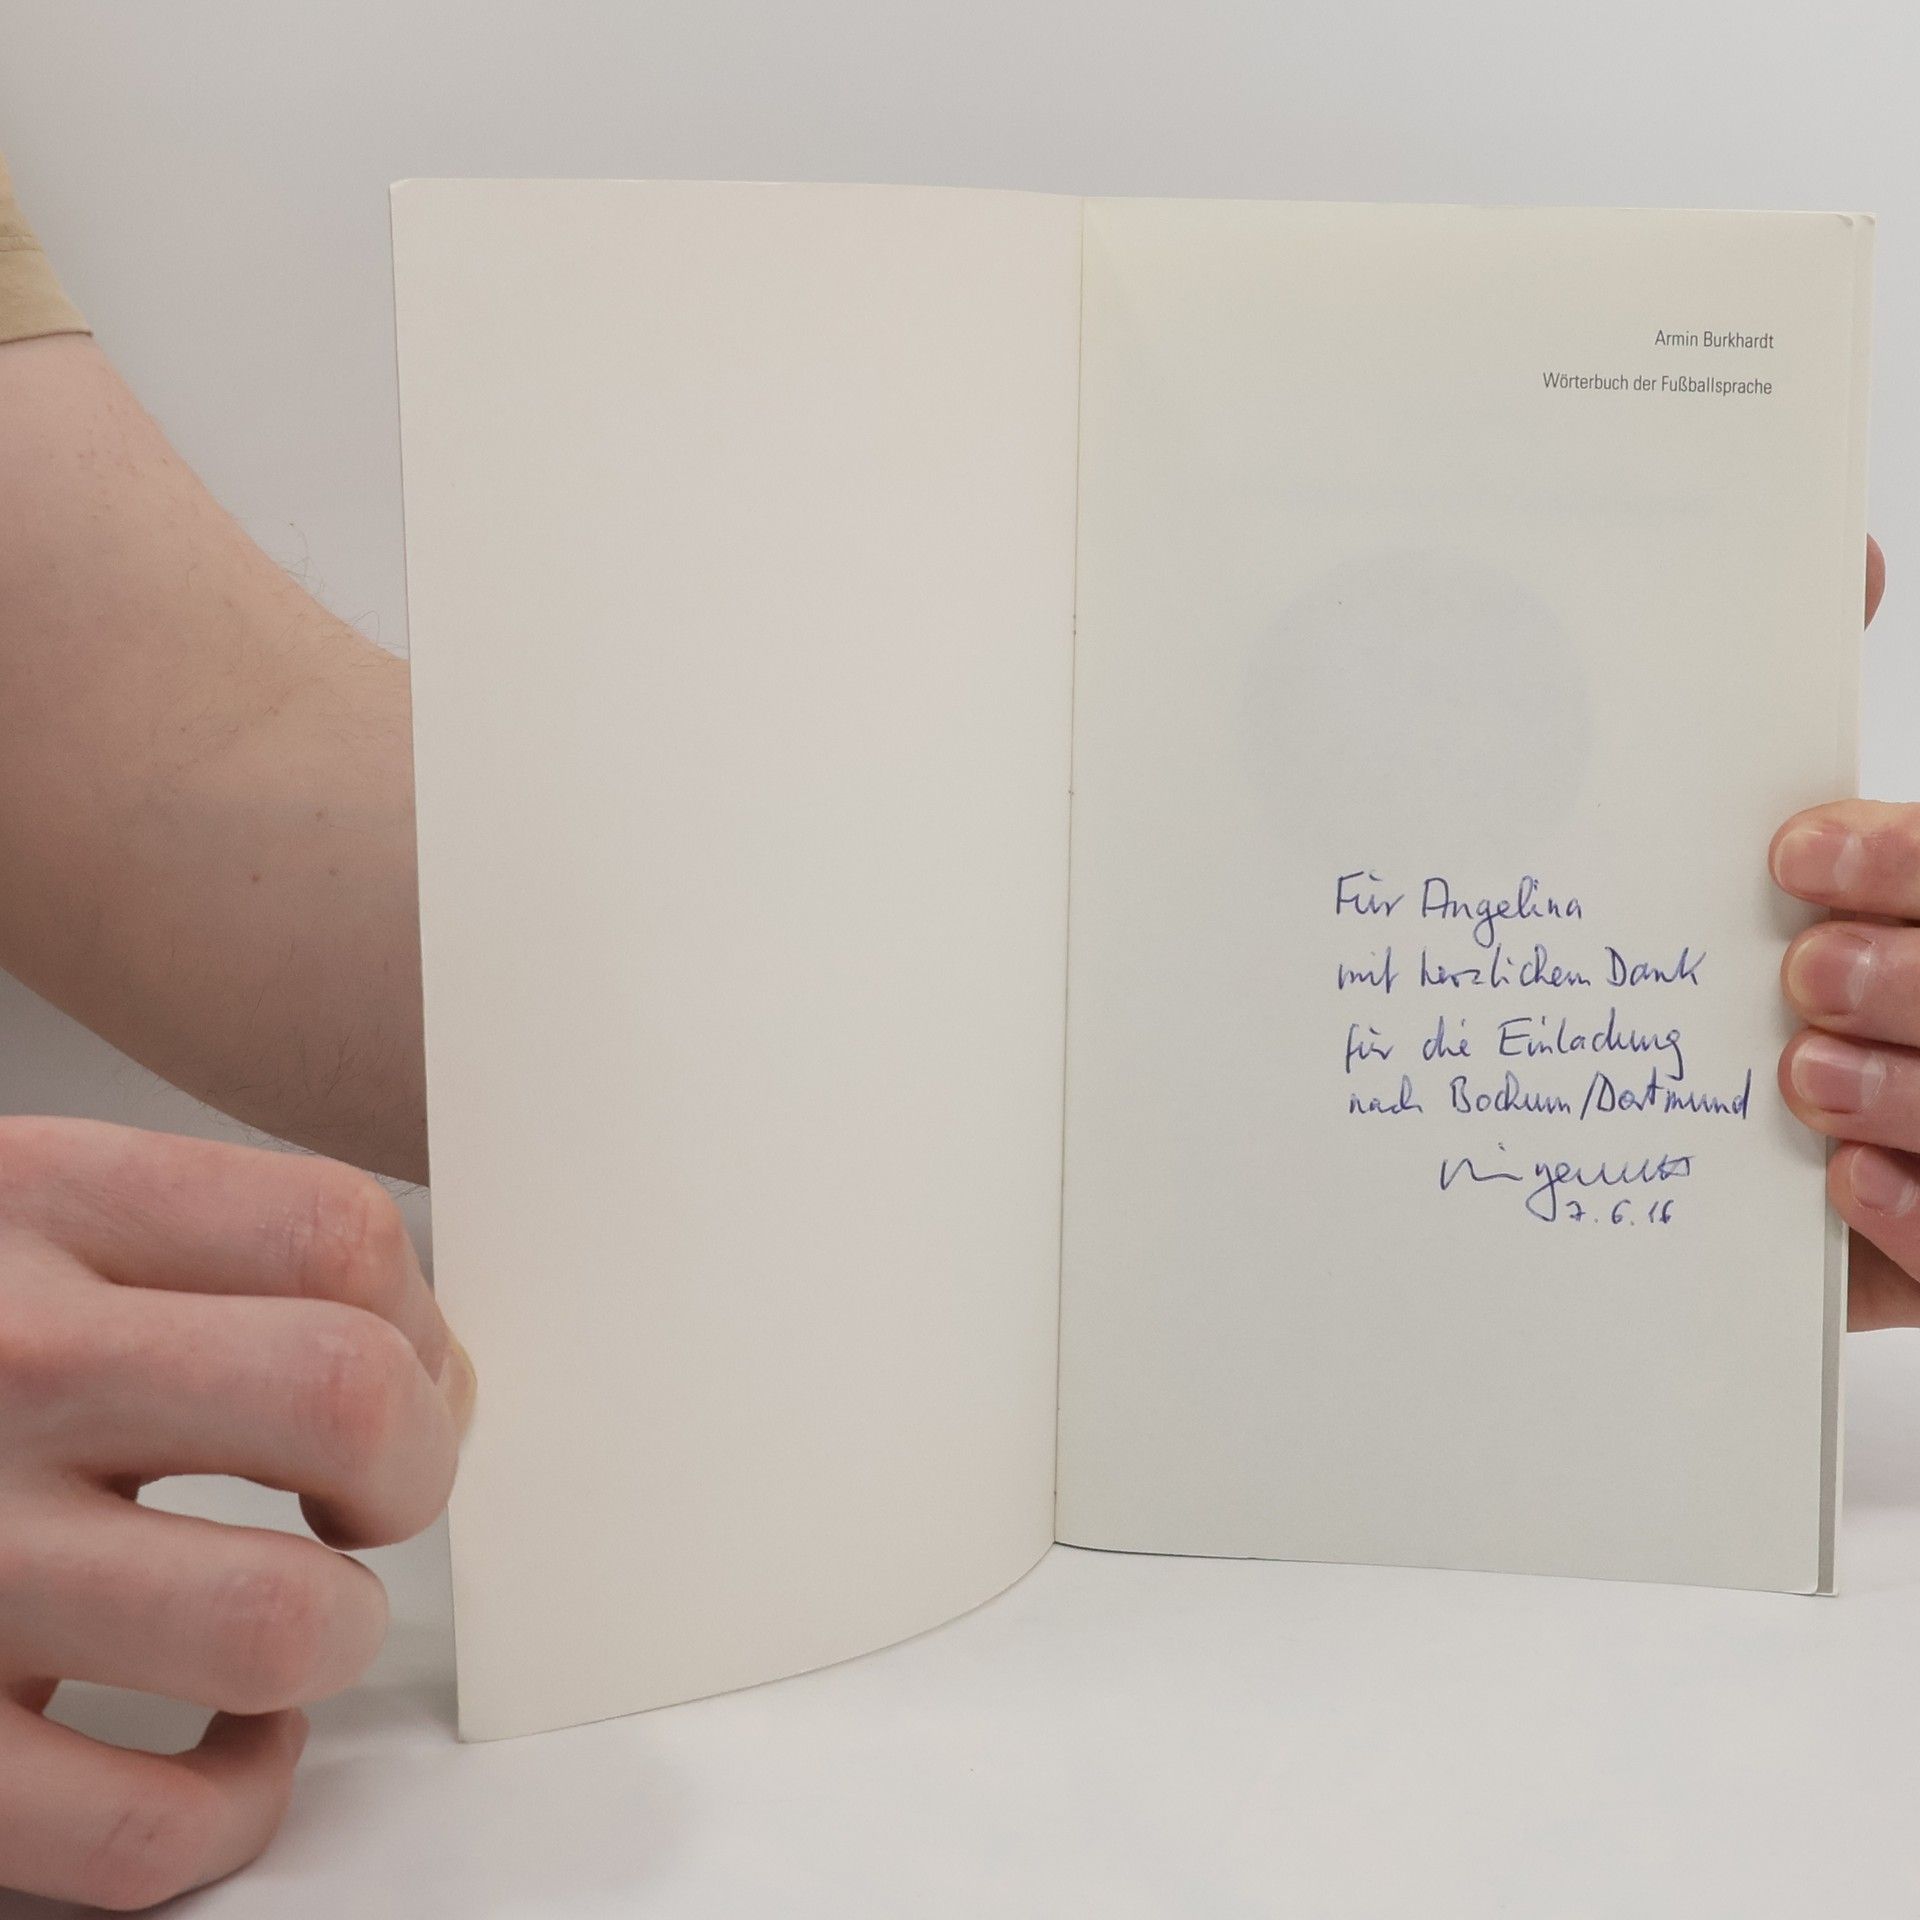 Armin Burkhardt
Wörterbuch der Fußballsprache
Für Angelina
mit herzlichem Dank
für die Einladung
nach Bochum/Dortmund
7.6.16